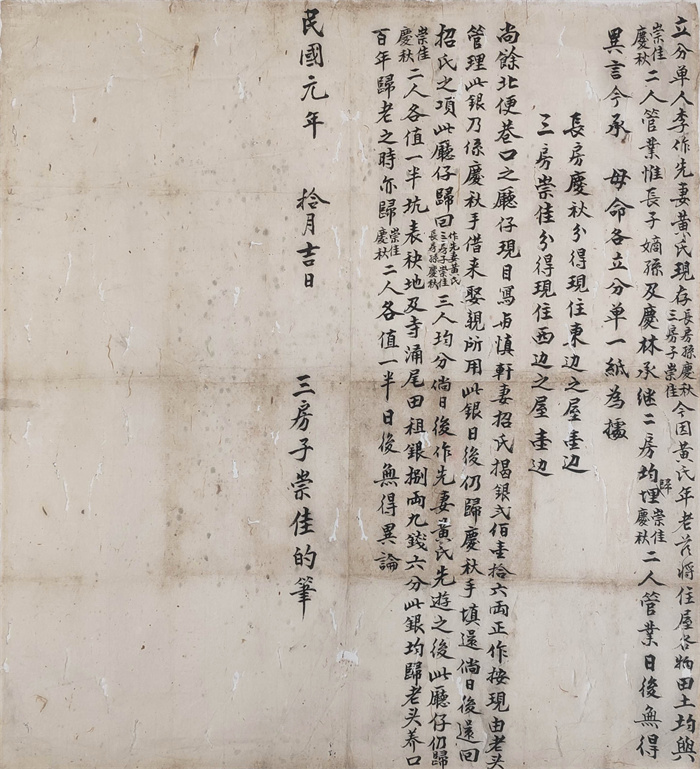 立分单人李作先妻黄氏現存長房孫慶秋三房子崇佳今因黄氏年老茲將住屋各物田土均與
崇佳慶秋二人管業惟長子嫡孫及慶林承継二房均埋歸崇佳慶秋二人管業日後無得
異言今承 母命各立分单一紙為據
長房慶秋分得現住東边之屋壹边
三房崇佳分得現住西边之屋壹边
尚餘北便巷口之廳仔現目寫与慎軒妻招氏揭銀弍佰壹拾六両正作按現由老头
管理此銀乃係慶秋手借来娶親所用此銀日後仍歸慶秋手填還倘日後還回
招氏之項此廳仔歸回作先妻黄氏三房子崇佳長房孫慶秋三人均分倘日後作先妻黄氏先遊之後此廳仔仍歸
崇佳慶秋二人各值一半坑表秧地及寺涌尾田租銀捌両九錢六分此銀均歸老头养口
百年歸老之時亦歸崇佳慶秋二人各值一半日後無得異論
民國元年 拾月吉日 三房子崇佳的筆